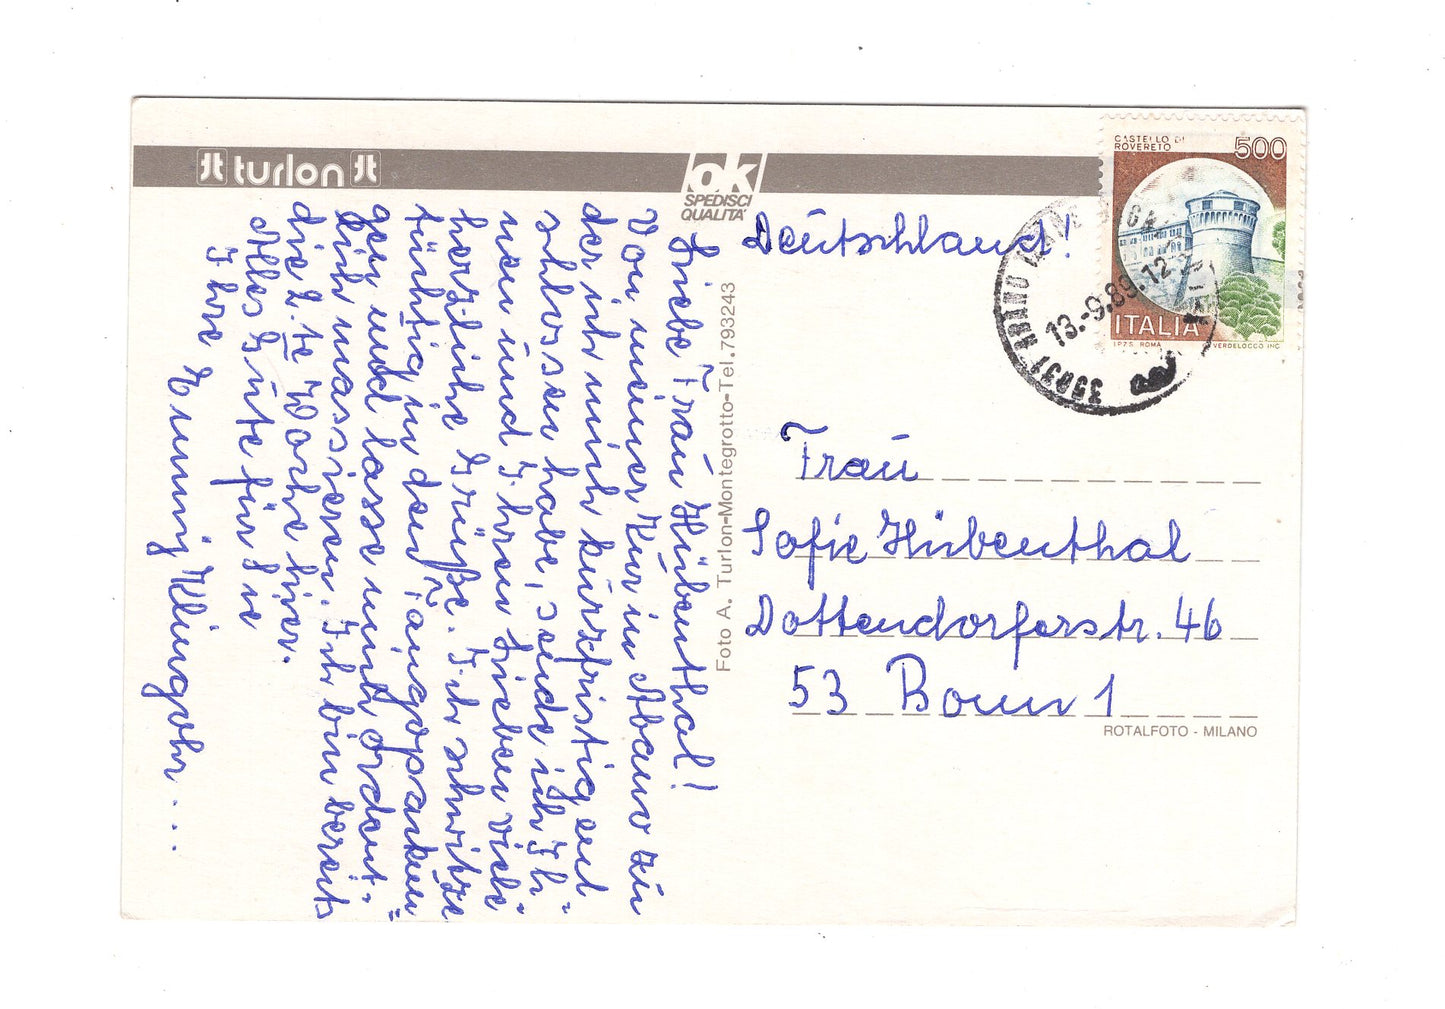 turlon
ok
SPEDISCI
QUALITA'
CASTELLO DI
ROVERETO
500
ITALIA
I.P.Z.S. ROMA
VERDELOCCO INC.
35031 ABANO
13.-9.89.12
Deutschland!
Liebe Frau Hübenthal!
Von meiner Kur in Abano zu
der ich mich kurzfristig ent-
schlossen habe, sende ich Ih-
nen und Ihren Lieben viele
herzliche Grüße. Ich schwitze
tüchtig in den Fangopackun-
gen und lasse mich ordent-
lich massieren. Ich bin bereits
die 2.te Woche hier.
Alles Gute für Sie
Ihre
Emmy Klingohr...
Foto A. Turlon-Montegrotto-Tel.793243
Frau
Sofie Hübenthal
Dottendorferstr. 46
53 Bonn 1
ROTALFOTO - MILANO